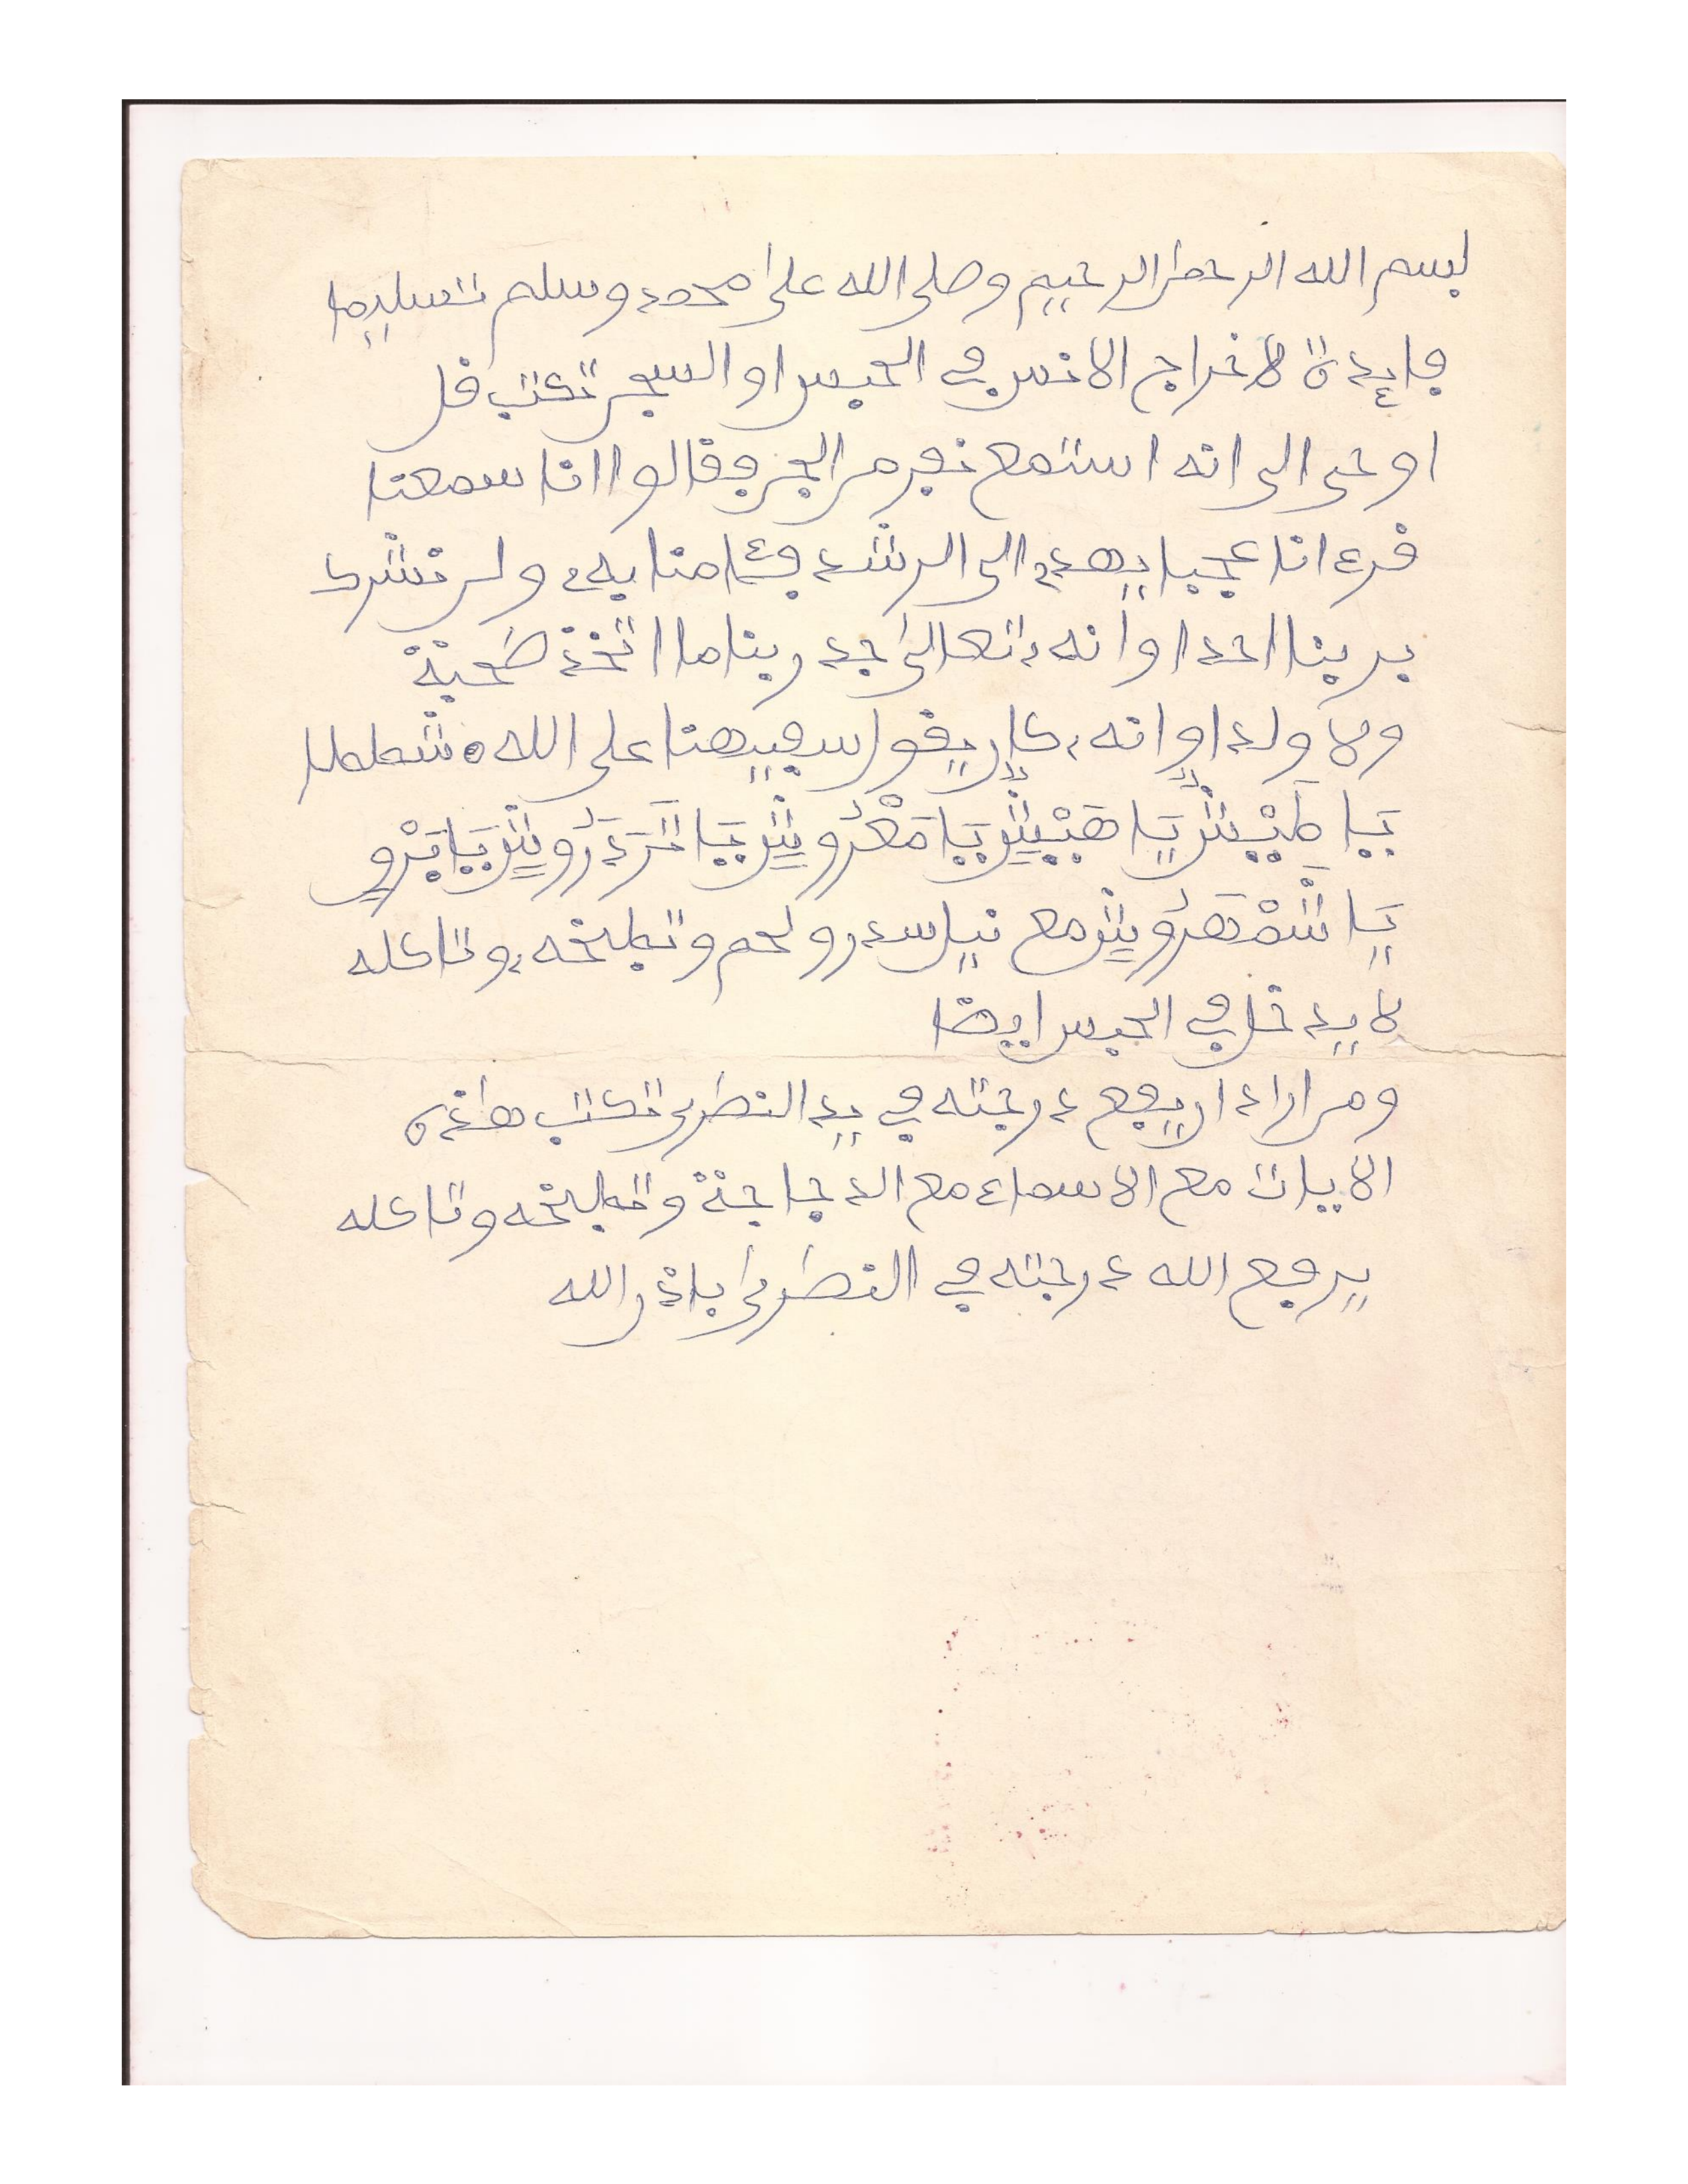 بسم الله الرحمن الرحيم وصلى الله على محمد وسلم تسليما
فايدة لاخراج الانس في الحبس او السجن تكتب قل
اوحى الى انه استمع نفر من الجن فقالوا انا سمعنا
قرءانا عجبا يهدى الى الرشد فـٔامنا به ولن نشرك
بربنا احدا وانه تعالى جد ربنا ما اتخذ صحبة
ولا ولدا وانه كان يقول سفيهنا على الله شططا
يَا طَيْبُشٍ يَا هَيْبُشٍ يَا مَعْرُوشٍ يَا خَرَدَرُوشٍ يَا بَرْوٍ
يَا شَمْهَرُوشٍ مع نيا سدر ولحم وتطبخه وتاكله
لا يدخل في الحبس ايضا
ومن اراد ان يرفع درجته في يد النصرى تكتب هذه
الايات مع الاسماء مع الدجاجة وتطبخه وتاكله
يرفع الله درجته في النصرى باذن الله